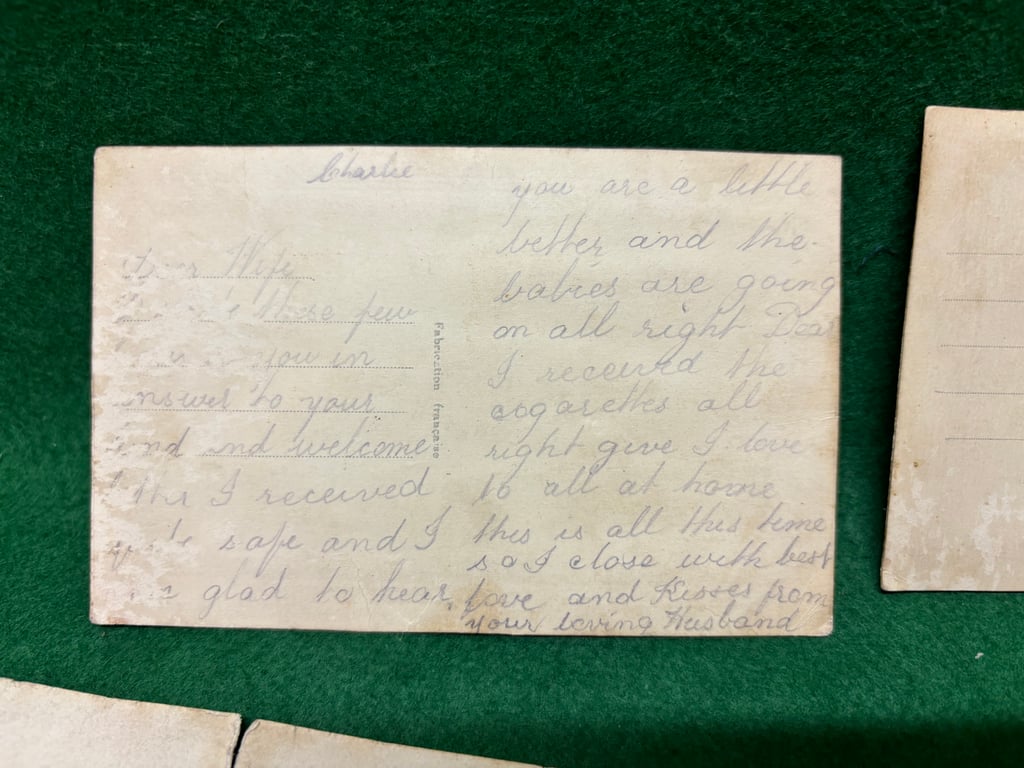 Charlie
Dear Wife
these few
you in
answer to your
kind and welcome
letter I received
quite safe and I
was glad to hear
Fabrication française
you are a little
better and the
babies are going
on all right Dear
I received the
cogarettes all
right give I love
to all at home
this is all this time
so I close with best
love and Kisses from
your loving Husband